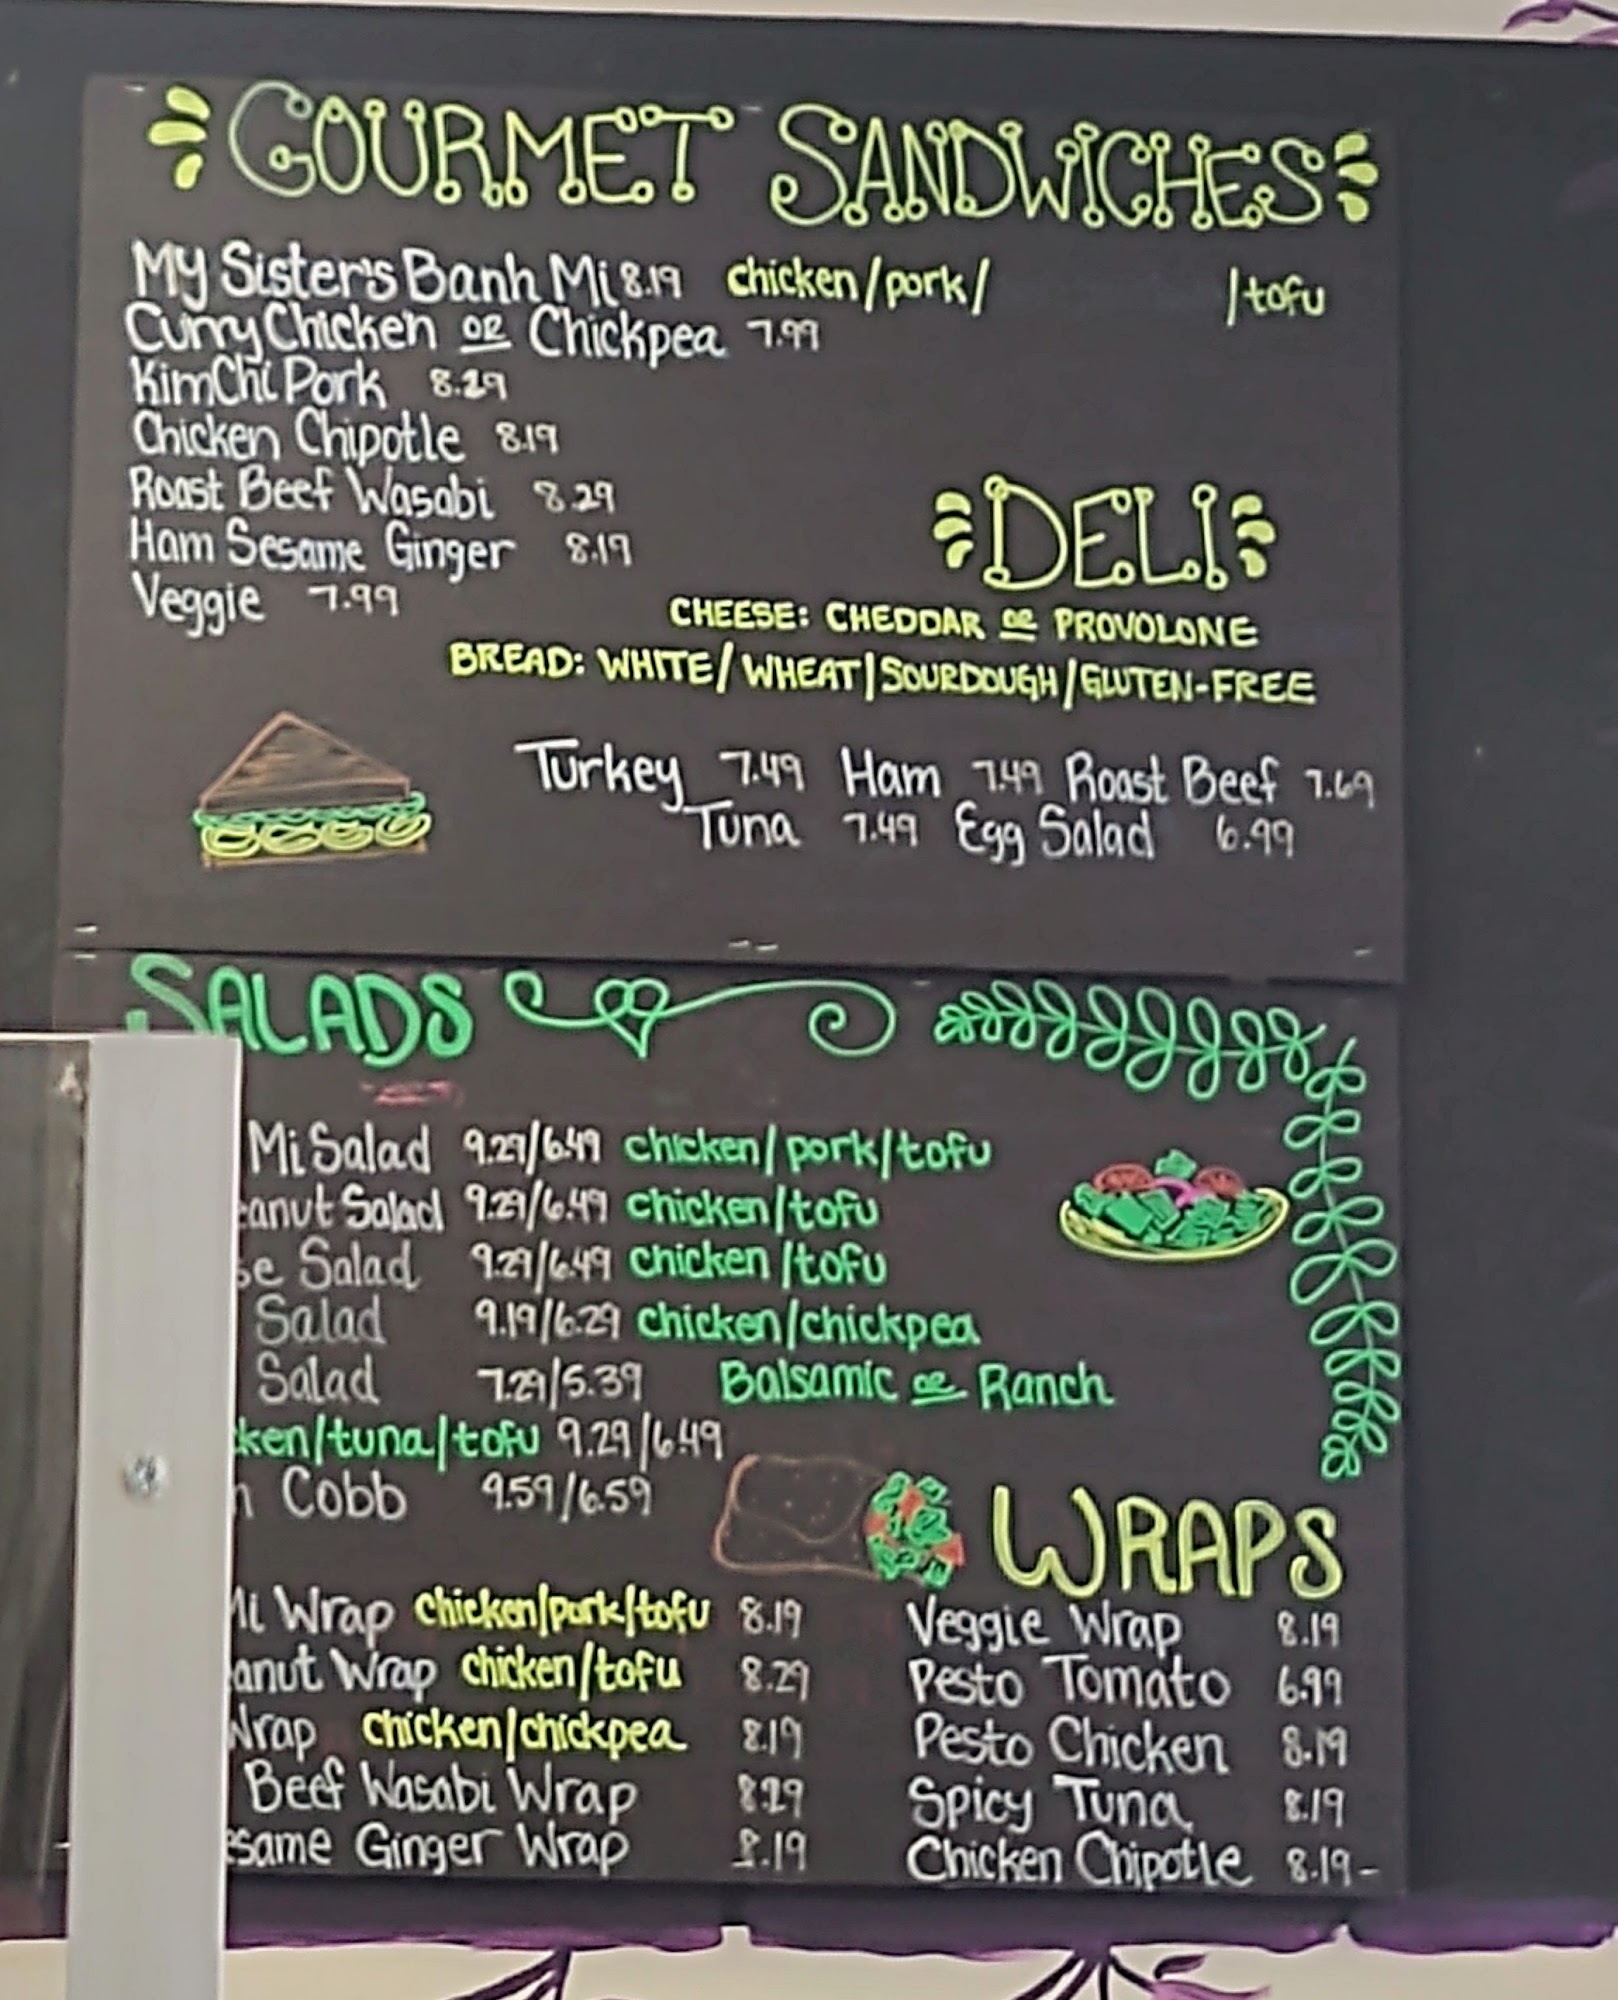 GOURMET SANDWICHES
My Sister's Banh Mi 8.19 chicken/pork/ /tofu
Curry Chicken OR Chickpea 7.99
KimChi Pork 8.29
Chicken Chipotle 8.19
Roast Beef Wasabi 8.29
Ham Sesame Ginger 8.19
Veggie 7.99
DELI
CHEESE: CHEDDAR OR PROVOLONE
BREAD: WHITE/WHEAT/SOURDOUGH/GLUTEN-FREE
Turkey 7.49 Ham 7.49 Roast Beef 7.69
Tuna 7.49 Egg Salad 6.99
SALADS
Mi Salad 9.29/6.49 chicken/pork/tofu
anut Salad 9.29/6.49 chicken/tofu
se Salad 9.29/6.49 chicken/tofu
Salad 9.19/6.29 chicken/chickpea
Salad 7.29/5.39 Balsamic OR Ranch
ken/tuna/tofu 9.29/6.49
n Cobb 9.59/6.59
WRAPS
Mi Wrap chicken/pork/tofu 8.19
anut Wrap chicken/tofu 8.29
Wrap chicken/chickpea 8.19
Beef Wasabi Wrap 8.29
esame Ginger Wrap 8.19
Veggie Wrap 8.19
Pesto Tomato 6.99
Pesto Chicken 8.19
Spicy Tuna 8.19
Chicken Chipotle 8.19-